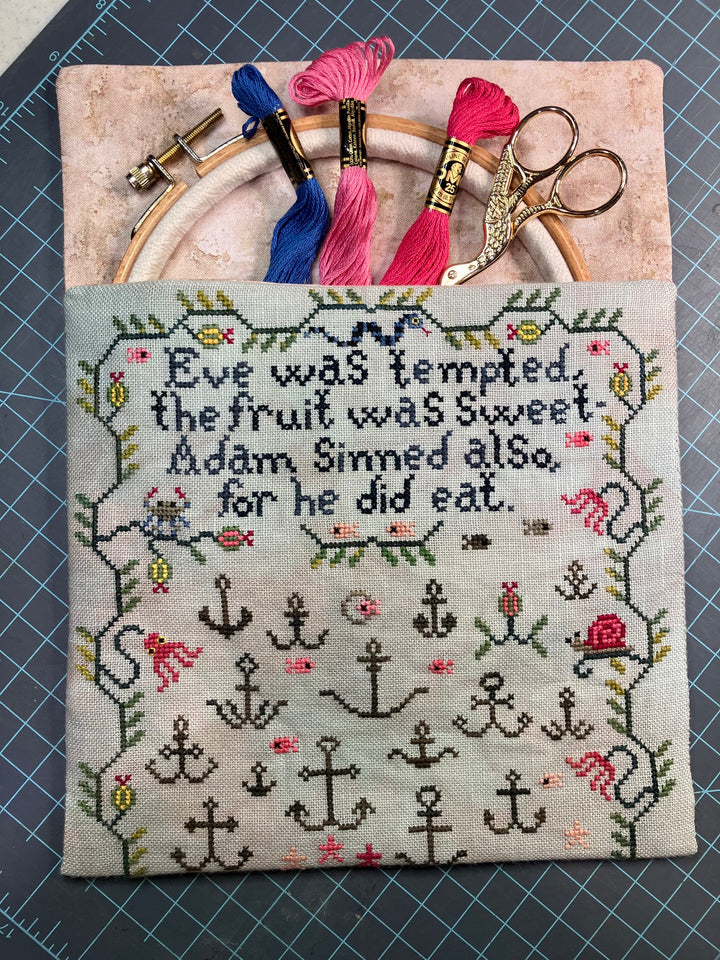 25
Eve was tempted,
the fruit was sweet-
Adam Sinned also,
for he did eat.